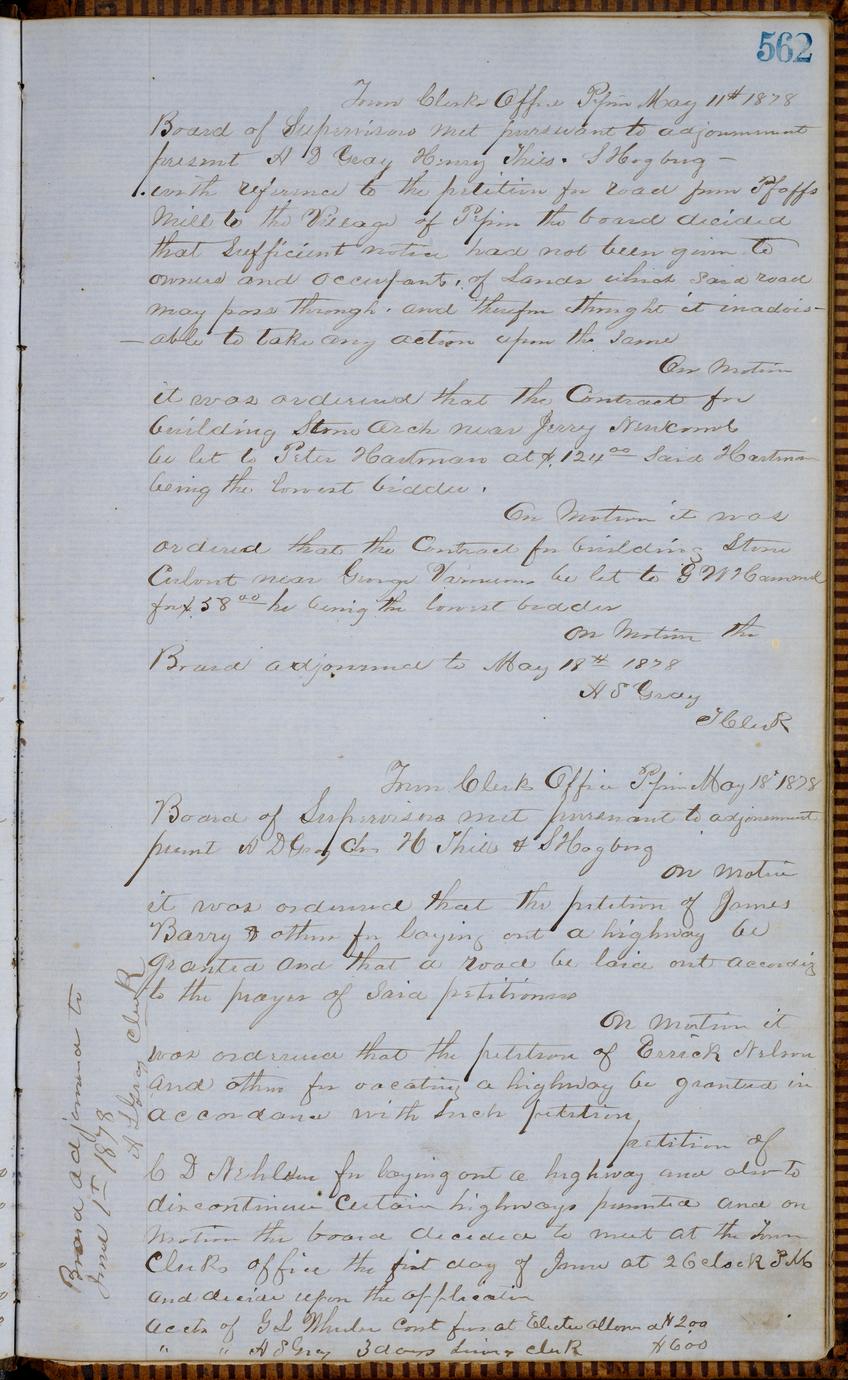 562
Town Clerks Office Pepin May 11th 1878
Board of Supervisors met pursuant to adjournment
present A D Gray Henry Thies. S Hogberg —
with reference to the petition for road from Pfaffs
Mill to the Village of Pepin the board decided
that Sufficient notice had not been given to
owners and occupants of Lands which Said road
may pass through. and therefor thought it inadvis-
able to take any action upon the Same
On Motion
it was ordered that the Contract for
building Stone Arch near Jerry Newcomb
be let to Peter Hartman at $124 00 Said Hartman
being the lowest bidder.
On Motion it was
ordered that the Contract for building Stone
Culvert near George Varnums be let to G W Hammel
for $58 00 he being the lowest bidder
On Motion the
Board adjourned to May 18th 1878
A S Gray
T Clerk
Town Clerk Office Pepin May 18 1878
Board of Supervisors met pursuant to adjournment
present A D Gray H Thies & S Hogberg
On Motion
it was ordered that the petition of James
Barry & others for laying out a highway be
granted and that a road be laid out according
to the prayer of Said petitioners
On Motion it
was ordered that the petition of Errick Nelson
and others for vacating a highway be granted in
accordance with Such petition
petition of
C D for laying out a highway and also to
discontinue Certain highways presented and on
Motion the board decided to meet at the Town
Clerks office the first day of June at 2 Oclock P.M
and decide upon the application
accts of G L Wheeler Const at allowed at 2.00
" " A S Gray 3 days clerk $6.00
Board adjourned to
June 1st 1878
A S Gray Clerk